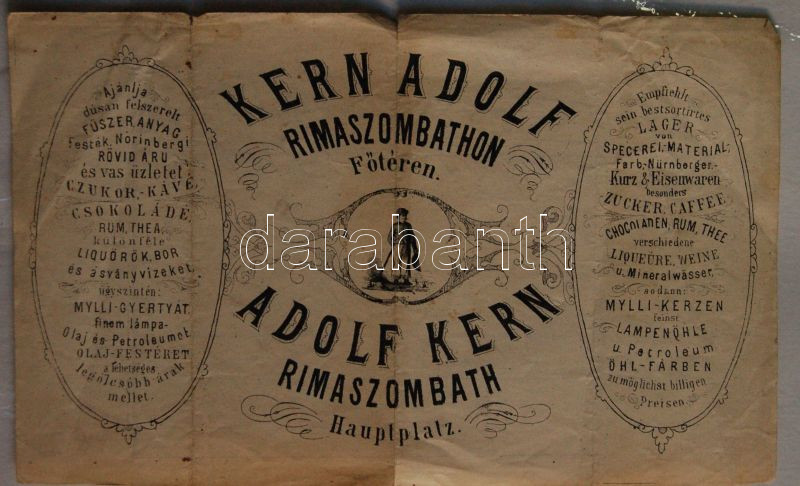 Ajánlja
dúsan felszerelt
FŰSZER, ANYAG
Festék, Nörinbergi
RÖVID ÁRU
és vas üzletét
CZUKOR,-KÁVÉ,
CSOKOLÁDÉ
RUM, THEA,
különféle
LIQUÖRÖK, BOR
és ásványvizeket,
úgyszintén:
MYLLI-GYERTYÁT,
finem lámpa-
Olaj és Petroleumot
OLAJ-FESTÉRET
a lehetséges
lególcsóbb árak
mellet.
KERN ADOLF
RIMASZOMBATHON
Főtéren.
darabanth
ADOLF KERN
RIMASZOMBATH
Hauptplatz.
Empfiehlt
sein bestsortirtes
LAGER
von
SPECEREI,-MATERIAL,
Farb,-Nürnberger,-
Kurz & Eisenwaren
besonders
ZUCKER, CAFFEE
RUM, THEE
verschiedene
LIQUEÜRE, WEINE
u. Mineralwässer,
sodann:
MYLLI-KERZEN
feinst
LAMPENÖHLE
u. Petroleum
ÖHL-FARBEN
zu möglichst billigen
Preisen.